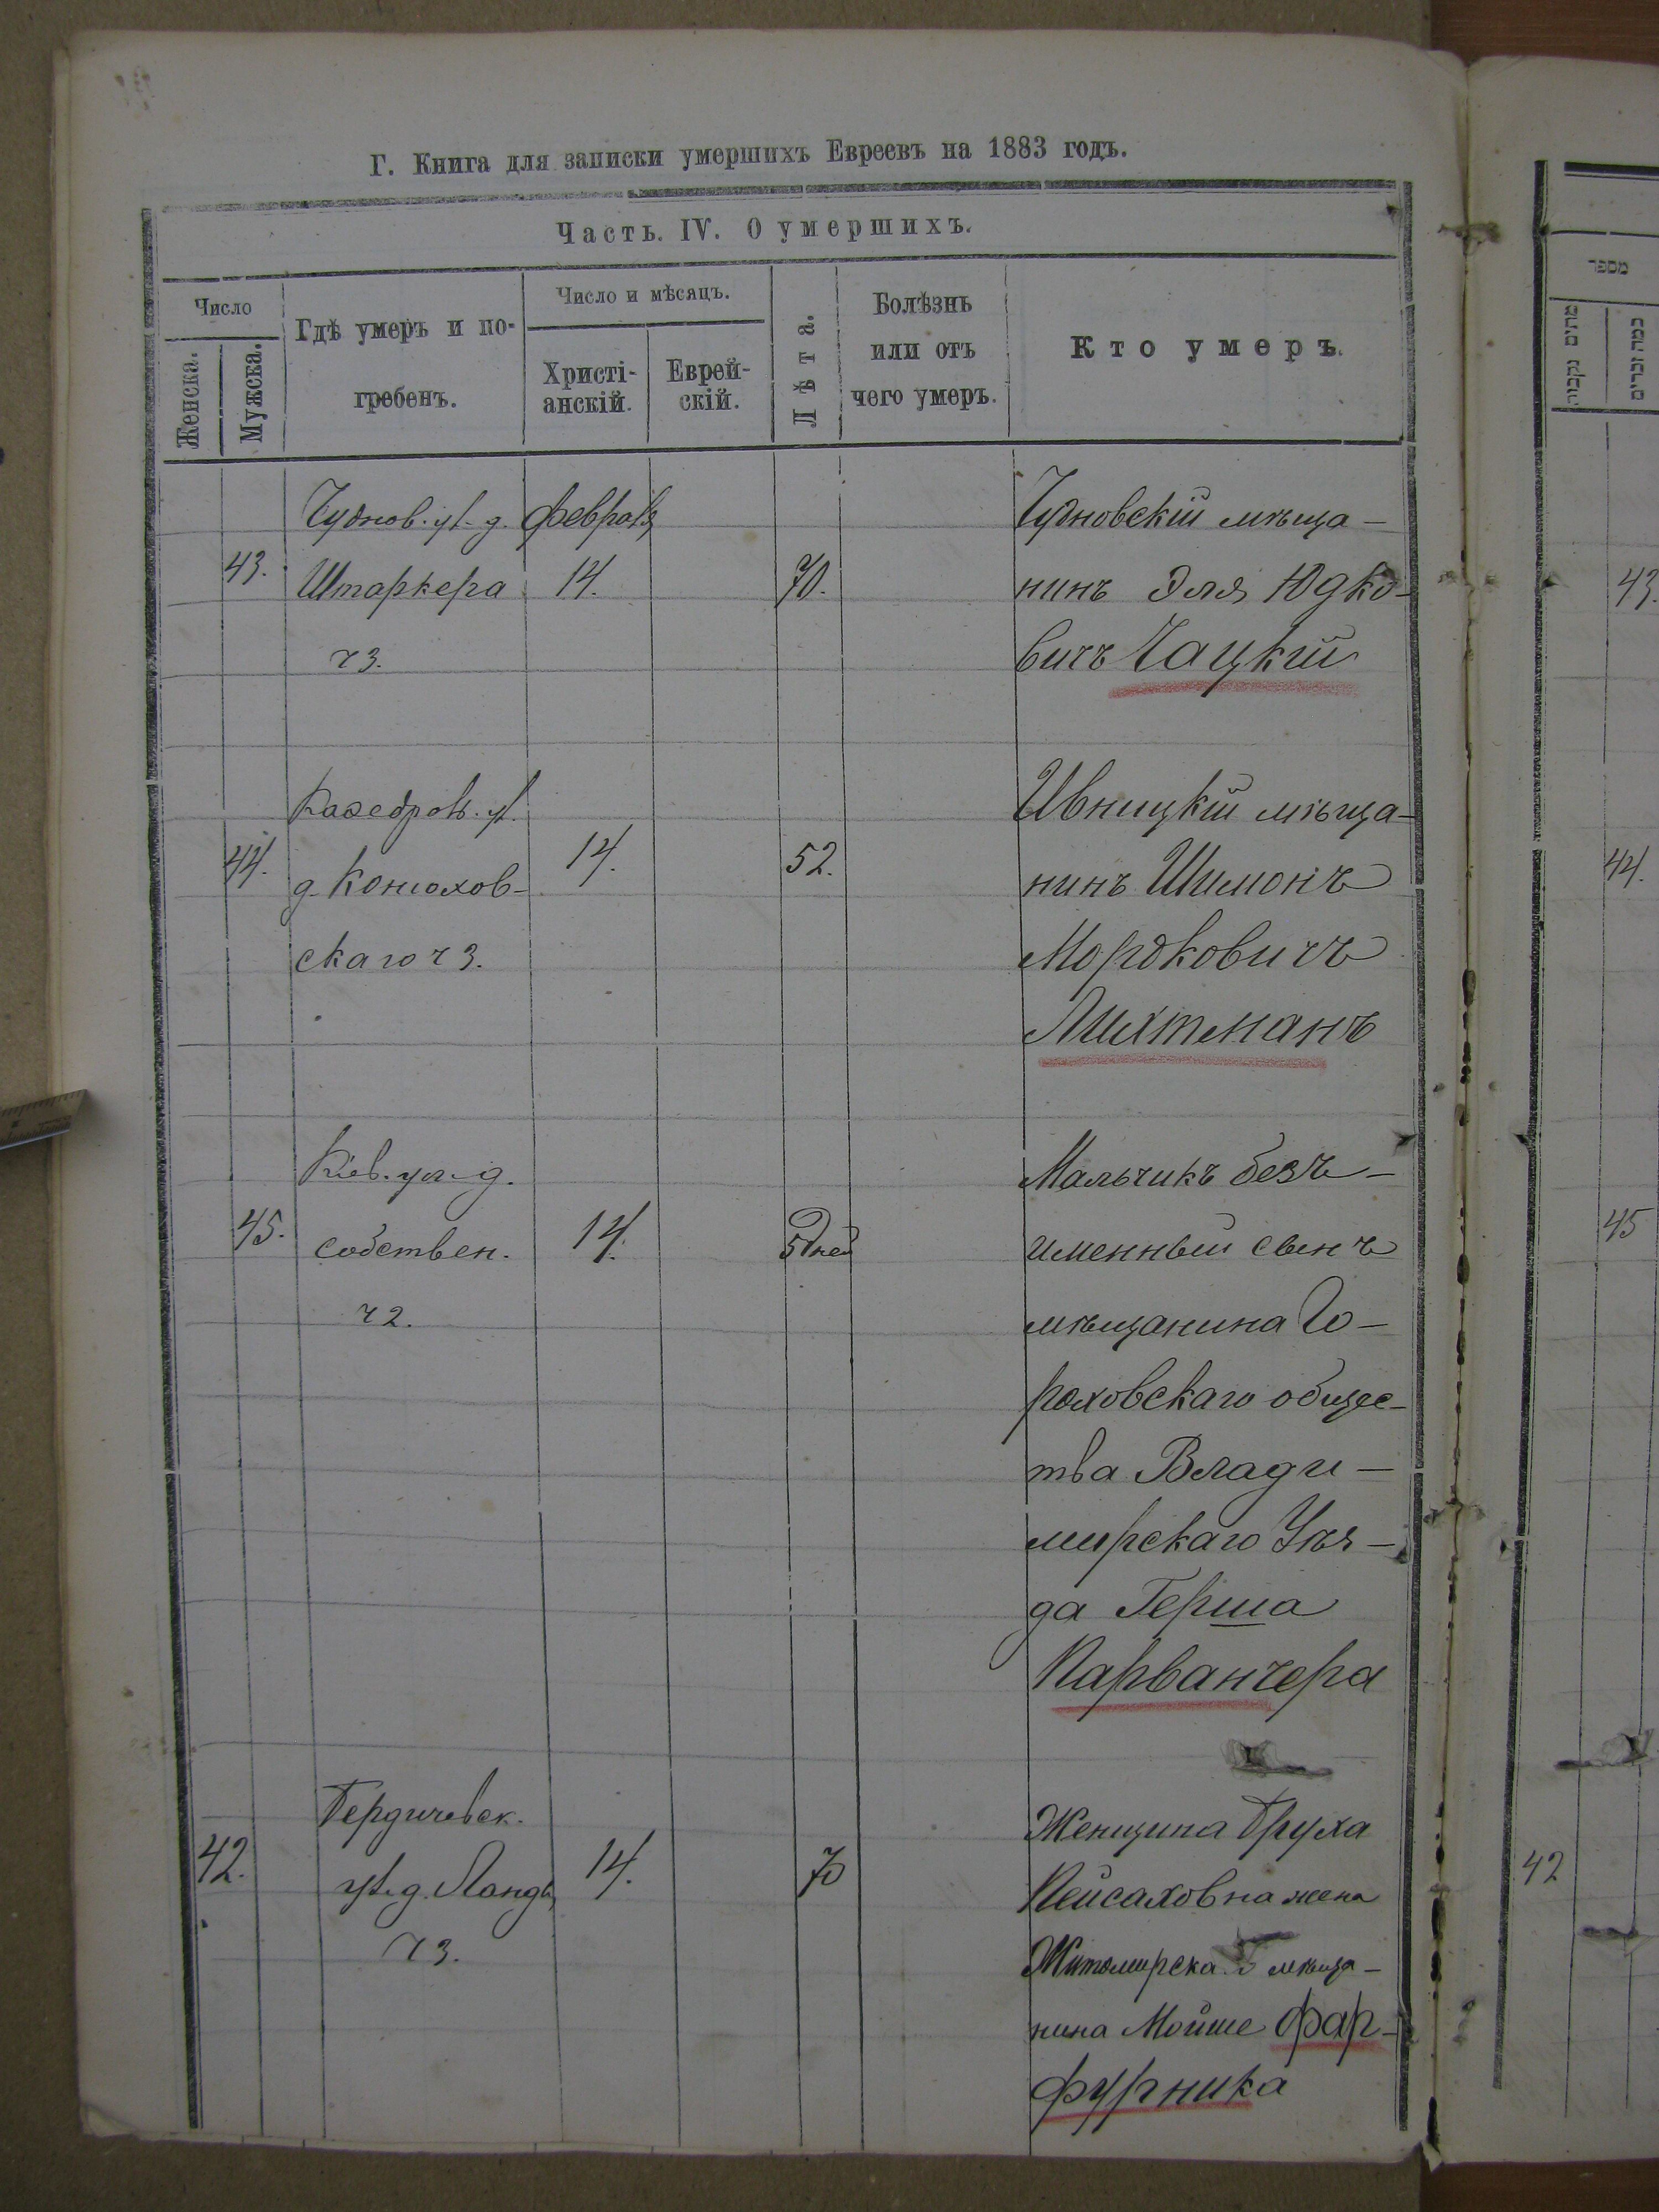 Г. Книга для записки умершихъ Евреевъ на 1883 годъ.
Часть. IV. О умершихъ.
Число
Женска.
Мужска.
Гдѣ умеръ и по-
гребенъ.
Число и мѣсяцъ.
Христі-
анскій.
Еврей-
скій.
Лѣта.
Болѣзнь
или отъ
чего умеръ.
Кто умеръ.
43.
Чуднов. ул. д.
Штаркера
ч 3.
Февраля
14.
70.
Чудновскій мѣща-
нинъ Эля Юдко-
вичъ Чацкій
44.
Каѳедров. ул.
д. Конюхов-
скаго ч 3.
14.
52.
Ивницкій мѣща-
нинъ Шимонъ
Мордковичъ
Лихтманъ
45.
Кіев. ул. д.
собствен.
ч 2.
14.
5 дней
Мальчикъ безъ-
именный сынъ
мѣщанина Го-
роховскаго общес-
тва Влади-
мирскаго Уѣз-
да Герша
Парванчера
42.
Бердичевск.
ул. д. Ландъ
ч 3.
14.
70
Женщина Бруха
Пейсаховна жена
Житомирска мѣща-
нина Мойше Фар-
фурника
מספר
43.
44.
45
42